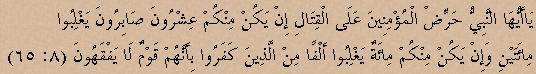 يَاأَيُّهَا النَّبِيُّ حَرِّضْ الْمُؤْمِنِينَ عَلَى الْقِتَالِ إِنْ يَكُنْ مِنْكُمْ عِشْرُونَ صَابِرُونَ يَغْلِبُوا
مِائَتَيْنِ وَإِنْ يَكُنْ مِنْكُمْ مِائَةٌ يَغْلِبُوا أَلْفًا مِنْ الَّذِينَ كَفَرُوا بِأَنَّهُمْ قَوْمٌ لَا يَفْقَهُونَ (٨: ٦٥)